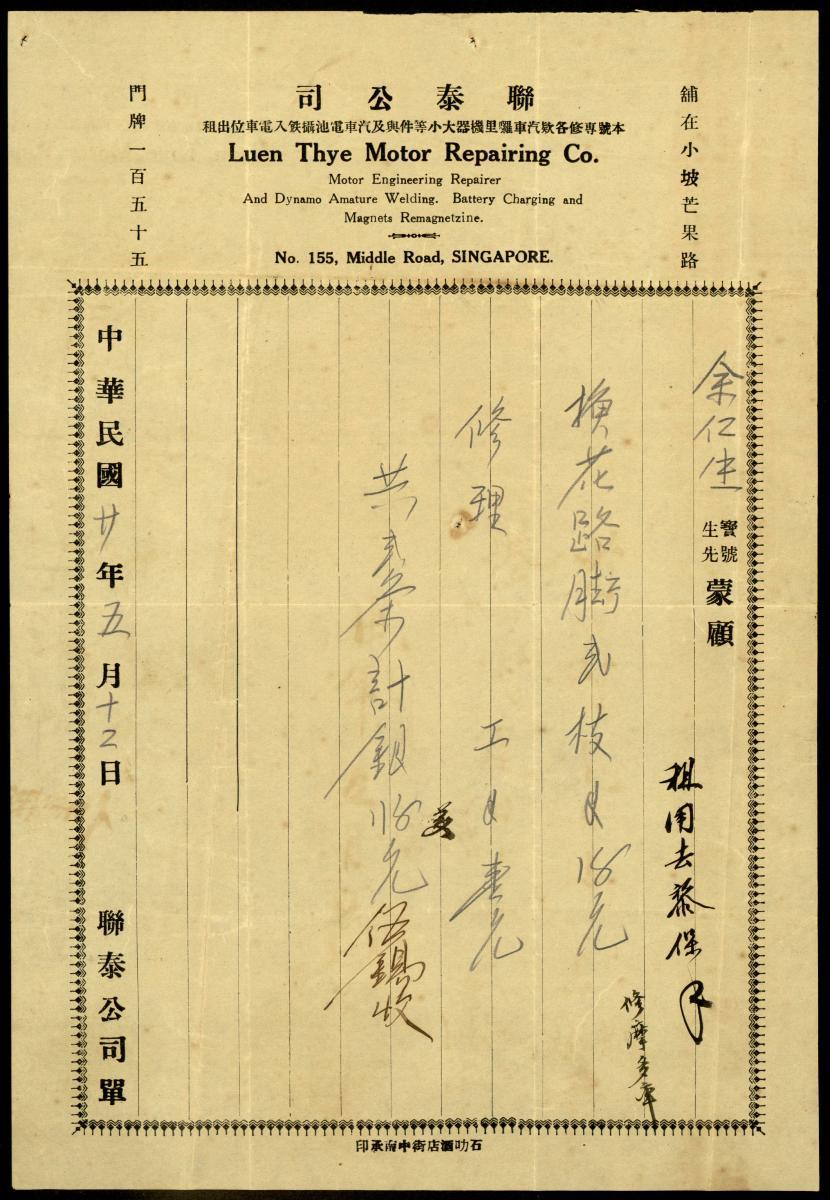 聯泰公司
本號專修各欵汽車囉里機器大小等件與及汽車電池攝鉄入電車位出租
Luen Thye Motor Repairing Co.
Motor Engineering Repairer
And Dynamo Amature Welding. Battery Charging and
Magnets Remagnetzine.
No. 155, Middle Road, SINGAPORE.
舖在小坡芒果路
門牌一百五十五
余仁生
寶號
先生
蒙顧
租用去
保
修摩多車
換花路脚弍枝
元
修理 工 壹元
共弍条計銀
元
伍錫收
中華民國廿年五月十二日
聯泰公司單
石叻酒店街中南承印